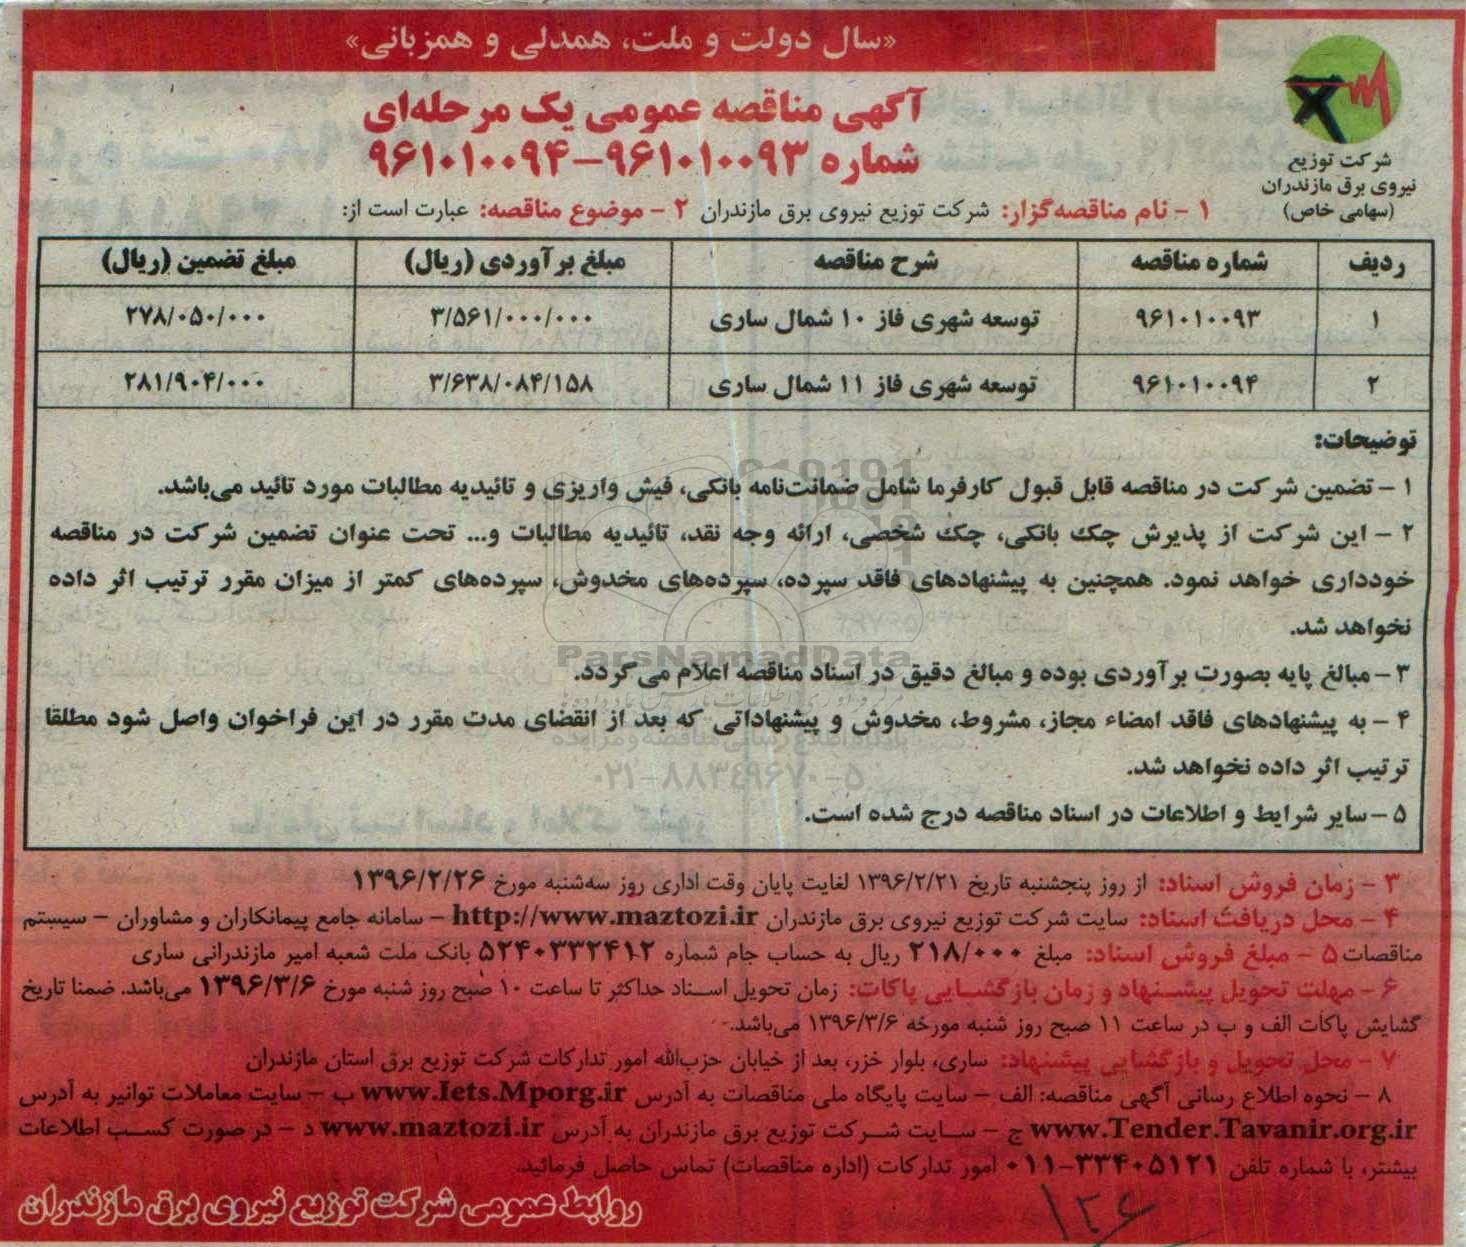 «سال دولت و ملت، همدلی و همزبانی»
شرکت توزیع
نیروی برق مازندران
(سهامی خاص)
آگهی مناقصه عمومی یک مرحله‌ای
شماره ۹۶۱۰۱۰۰۹۳-۹۶۱۰۱۰۰۹۴
۱ - نام مناقصه‌گزار: شرکت توزیع نیروی برق مازندران ۲ - موضوع مناقصه: عبارت است از:
ردیف شماره مناقصه شرح مناقصه مبلغ برآوردی (ریال) مبلغ تضمین (ریال)
۱ ۹۶۱۰۱۰۰۹۳ توسعه شهری فاز ۱۰ شمال ساری ۳/۵۶۱/۰۰۰/۰۰۰ ۲۷۸/۰۵۰/۰۰۰
۲ ۹۶۱۰۱۰۰۹۴ توسعه شهری فاز ۱۱ شمال ساری ۳/۶۳۸/۰۸۴/۱۵۸ ۲۸۱/۹۰۴/۰۰۰
توضیحات:
۱ - تضمین شرکت در مناقصه قابل قبول کارفرما شامل ضمانت‌نامه بانکی، فیش واریزی و تائیدیه مطالبات مورد تائید می‌باشد.
۲ - این شرکت از پذیرش چک بانکی، چک شخصی، ارائه وجه نقد، تائیدیه مطالبات و... تحت عنوان تضمین شرکت در مناقصه
خودداری خواهد نمود. همچنین به پیشنهادهای فاقد سپرده، سپرده‌های مخدوش، سپرده‌های کمتر از میزان مقرر ترتیب اثر داده
نخواهد شد.
ParsNamadData
۳ - مبالغ پایه بصورت برآوردی بوده و مبالغ دقیق در اسناد مناقصه اعلام می‌گردد.
۴ - به پیشنهادهای فاقد امضاء مجاز، مشروط، مخدوش و پیشنهاداتی که بعد از انقضای مدت مقرر در این فراخوان واصل شود مطلقا
ترتیب اثر داده نخواهد شد.
۰۲۱-۸۸۳۴۹۶۷۰-۵
۵ - سایر شرایط و اطلاعات در اسناد مناقصه درج شده است.
۳ - زمان فروش اسناد: از روز پنجشنبه تاریخ ۱۳۹۶/۲/۲۱ لغایت پایان وقت اداری روز سه‌شنبه مورخ ۱۳۹۶/۲/۲۶
۴ - محل دریافت اسناد: سایت شرکت توزیع نیروی برق مازندران http://www.maztozi.ir - سامانه جامع پیمانکاران و مشاوران - سیستم
مناقصات ۵ - مبلغ فروش اسناد: مبلغ ۲۱۸/۰۰۰ ریال به حساب جام شماره ۵۲۴۰۳۳۲۴۱۲ بانک ملت شعبه امیر مازندرانی ساری
۶ - مهلت تحویل پیشنهاد و زمان بازگشایی پاکات: زمان تحویل اسناد حداکثر تا ساعت ۱۰ صبح روز شنبه مورخ ۱۳۹۶/۳/۶ می‌باشد. ضمنا تاریخ
گشایش پاکات الف و ب در ساعت ۱۱ صبح روز شنبه مورخه ۱۳۹۶/۳/۶ می‌باشد.
۷ - محل تحویل و بازگشایی پیشنهاد: ساری، بلوار خزر، بعد از خیابان حزب‌الله امور تدارکات شرکت توزیع برق استان مازندران
۸ - نحوه اطلاع رسانی آگهی مناقصه: الف - سایت پایگاه ملی مناقصات به آدرس www.Iets.Mporg.ir ب - سایت معاملات توانیر به آدرس
www.Tender.Tavanir.org.ir ج - سایت شرکت توزیع برق مازندران به آدرس www.maztozi.ir د - در صورت کسب اطلاعات
بیشتر، با شماره تلفن ۳۳۴۰۵۱۲۱-۰۱۱ امور تدارکات (اداره مناقصات) تماس حاصل فرمائید.
روابط عمومی شرکت توزیع نیروی برق مازندران